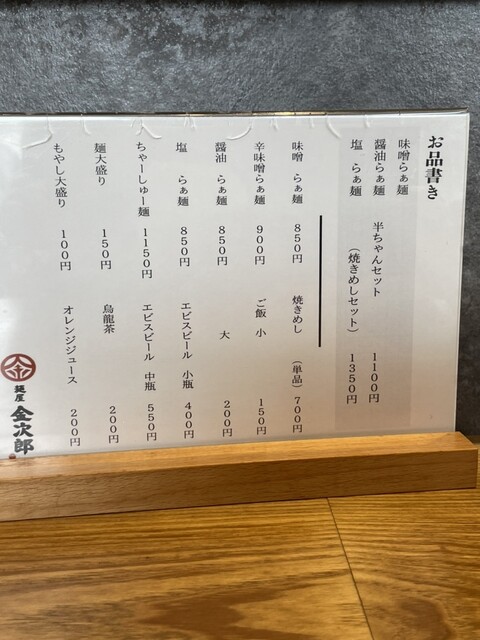 お品書き
味噌らぁ麺
醤油らぁ麺 半ちゃんセット 1100円
塩 らぁ麺 (焼きめしセット) 1350円
味噌 らぁ麺 850円
焼きめし (単品) 700円
辛味噌らぁ麺 900円
ご飯 小 150円
醤油 らぁ麺 850円
大 200円
塩 らぁ麺 850円
エビスビール 小瓶 400円
ちゃーしゅー麺 1150円
エビスビール 中瓶 550円
麺大盛り 150円
烏龍茶 200円
もやし大盛り 100円
オレンジジュース 200円
金
麺屋 金次郎